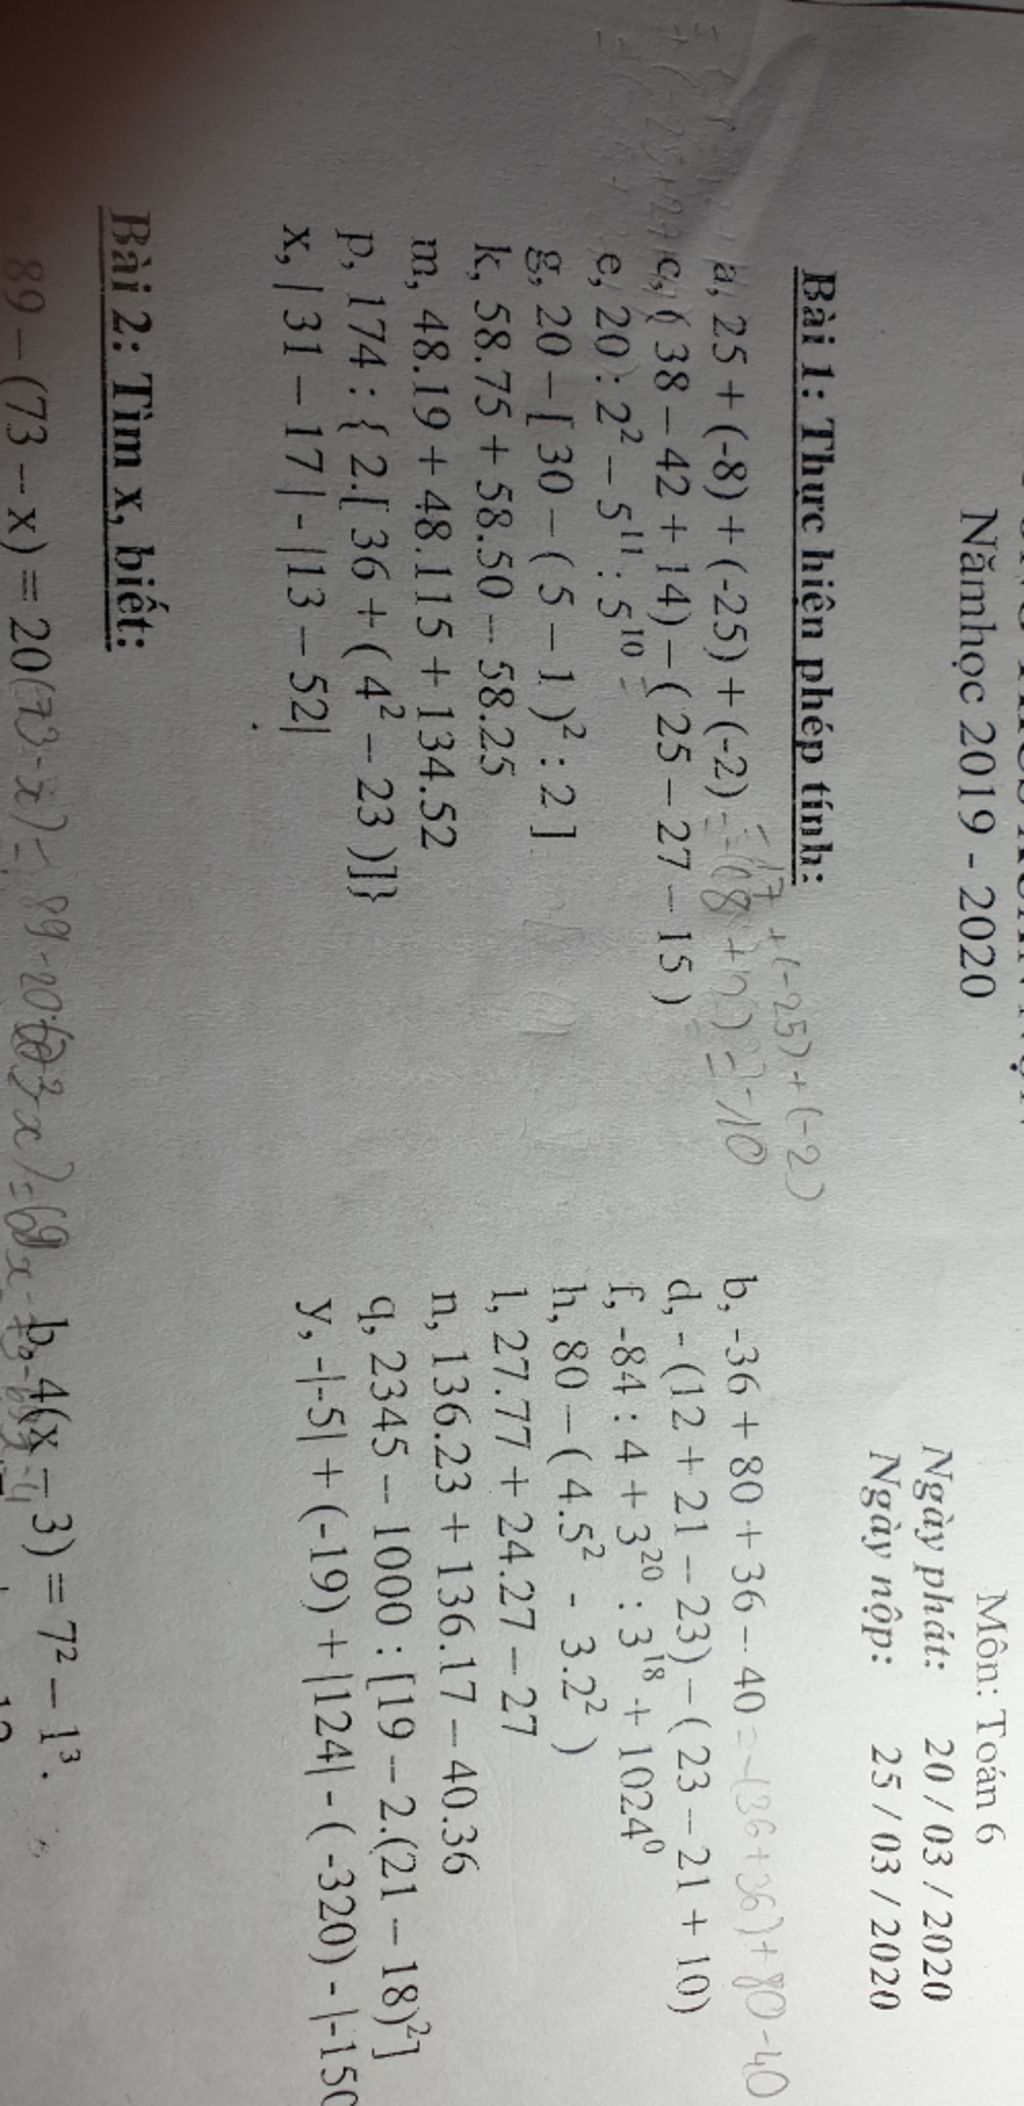 Nămhọc 2019 - 2020
Môn: Toán 6
Ngày phát: 20 / 03 / 2020
Ngày nộp: 25 / 03 / 2020
Bài 1: Thực hiện phép tính:
17 + (-25) + (-2)
a, 25 + (-8) + (-25) + (-2) = = -10
b, -36 + 80 + 36 – 40 = -(36+36)+80-40
c, ( 38 – 42 + 14) – ( 25 – 27 – 15 )
d, - (12 + 21 – 23) – ( 23 – 21 + 10)
e, 20 : 2² – 5¹¹ : 5¹⁰ =
f, -84 : 4 + 3²⁰ : 3¹⁸ + 1024⁰
g, 20 – [ 30 – ( 5 – 1 )² : 2 ]
h, 80 – ( 4.5² - 3.2² )
k, 58.75 + 58.50 – 58.25
l, 27.77 + 24.27 – 27
m, 48.19 + 48.115 + 134.52
n, 136.23 + 136.17 – 40.36
p, 174 : { 2.[ 36 + ( 4² – 23 )]}
q, 2345 – 1000 : [19 – 2.(21 – 18)²]
x, | 31 – 17 | - |13 – 52|
y, -|-5| + (-19) + |124| - ( -320) - |-150
Bài 2: Tìm x, biết:
89 – (73 – x) = 20 (73-x) = 89-20
b, 4(x – 3) = 7² – 1³.